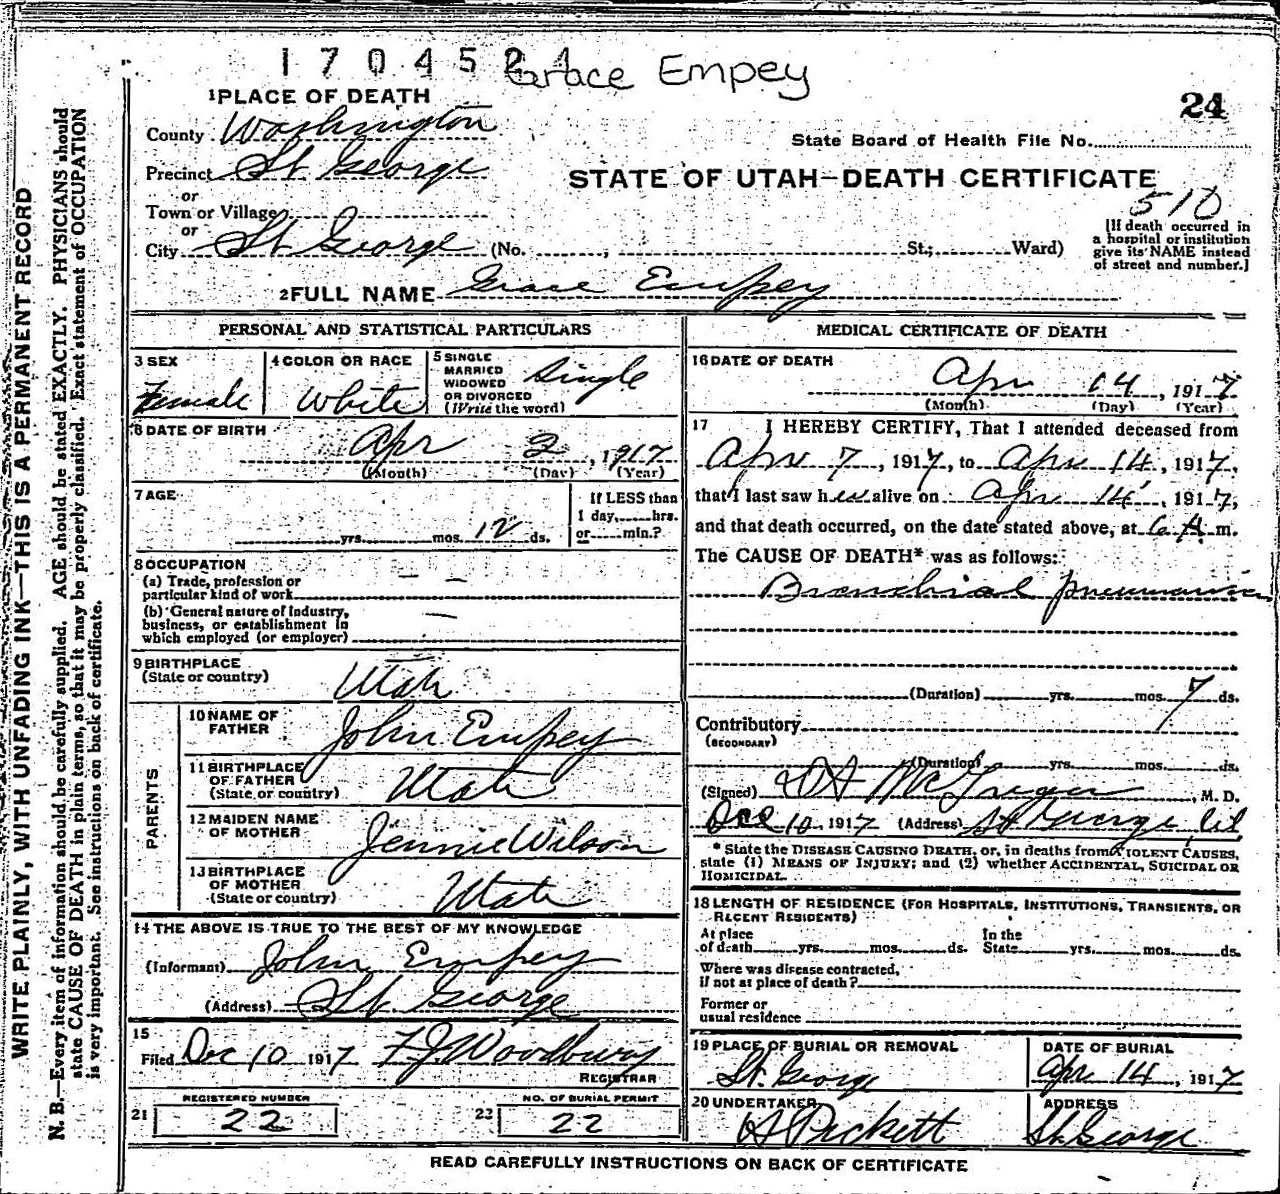 1704524
Grace Empey
24
1 PLACE OF DEATH
County Washington
State Board of Health File No.
Precinct St George
STATE OF UTAH—DEATH CERTIFICATE
or
Town or Village
or
510
City St George (No. , St.; Ward)
[If death occurred in
a hospital or institution
give its NAME instead
of street and number.]
2 FULL NAME Grace Empey
PERSONAL AND STATISTICAL PARTICULARS
3 SEX
Female
4 COLOR OR RACE
White
5 SINGLE
MARRIED
WIDOWED
OR DIVORCED
(Write the word)
Single
6 DATE OF BIRTH
Apr 2, 1917
(Month) (Day) (Year)
7 AGE
yrs. mos. 12 ds.
If LESS than
1 day, hrs.
or min.?
8 OCCUPATION
(a) Trade, profession or
particular kind of work — —
(b) General nature of industry,
business, or establishment in
which employed (or employer) —
9 BIRTHPLACE
(State or country)
Utah
PARENTS
10 NAME OF
FATHER
John Empey
11 BIRTHPLACE
OF FATHER
(State or country)
Utah
12 MAIDEN NAME
OF MOTHER
Jennie Wilson
13 BIRTHPLACE
OF MOTHER
(State or country)
Utah
14 THE ABOVE IS TRUE TO THE BEST OF MY KNOWLEDGE
(Informant) John Empey
(Address) St. George
15
Filed Dec 10 1917 F J Woodbury
REGISTRAR
REGISTERED NUMBER
21 22
NO. OF BURIAL PERMIT
22 22
MEDICAL CERTIFICATE OF DEATH
16 DATE OF DEATH
Apr 14, 1917
(Month) (Day) (Year)
17 I HEREBY CERTIFY, That I attended deceased from
Apr 7, 1917, to Apr 14, 1917,
that I last saw her alive on Apr 14, 1917,
and that death occurred, on the date stated above, at 6 A.m.
The CAUSE OF DEATH* was as follows:
Bronchial pneumonia
(Duration) yrs. mos. 7 ds.
Contributory
(SECONDARY)
(Duration) yrs. mos. ds.
(Signed) McGregor, M. D.
Dec 10, 1917 (Address) St George Ut
* State the DISEASE CAUSING DEATH, or, in deaths from VIOLENT CAUSES,
state (1) MEANS OF INJURY; and (2) whether ACCIDENTAL, SUICIDAL OR
HOMICIDAL.
18 LENGTH OF RESIDENCE (FOR HOSPITALS, INSTITUTIONS, TRANSIENTS, OR
RECENT RESIDENTS)
At place
of death yrs. mos. ds.
In the
State yrs. mos. ds.
Where was disease contracted,
if not at place of death?
Former or
usual residence
19 PLACE OF BURIAL OR REMOVAL
St. George
DATE OF BURIAL
Apr 14, 1917
20 UNDERTAKER
A Pickett
ADDRESS
St. George
READ CAREFULLY INSTRUCTIONS ON BACK OF CERTIFICATE
WRITE PLAINLY, WITH UNFADING INK—THIS IS A PERMANENT RECORD
N. B.—Every item of information should be carefully supplied. AGE should be stated EXACTLY. PHYSICIANS should
state CAUSE OF DEATH in plain terms, so that it may be properly classified. Exact statement of OCCUPATION
is very important. See instructions on back of certificate.